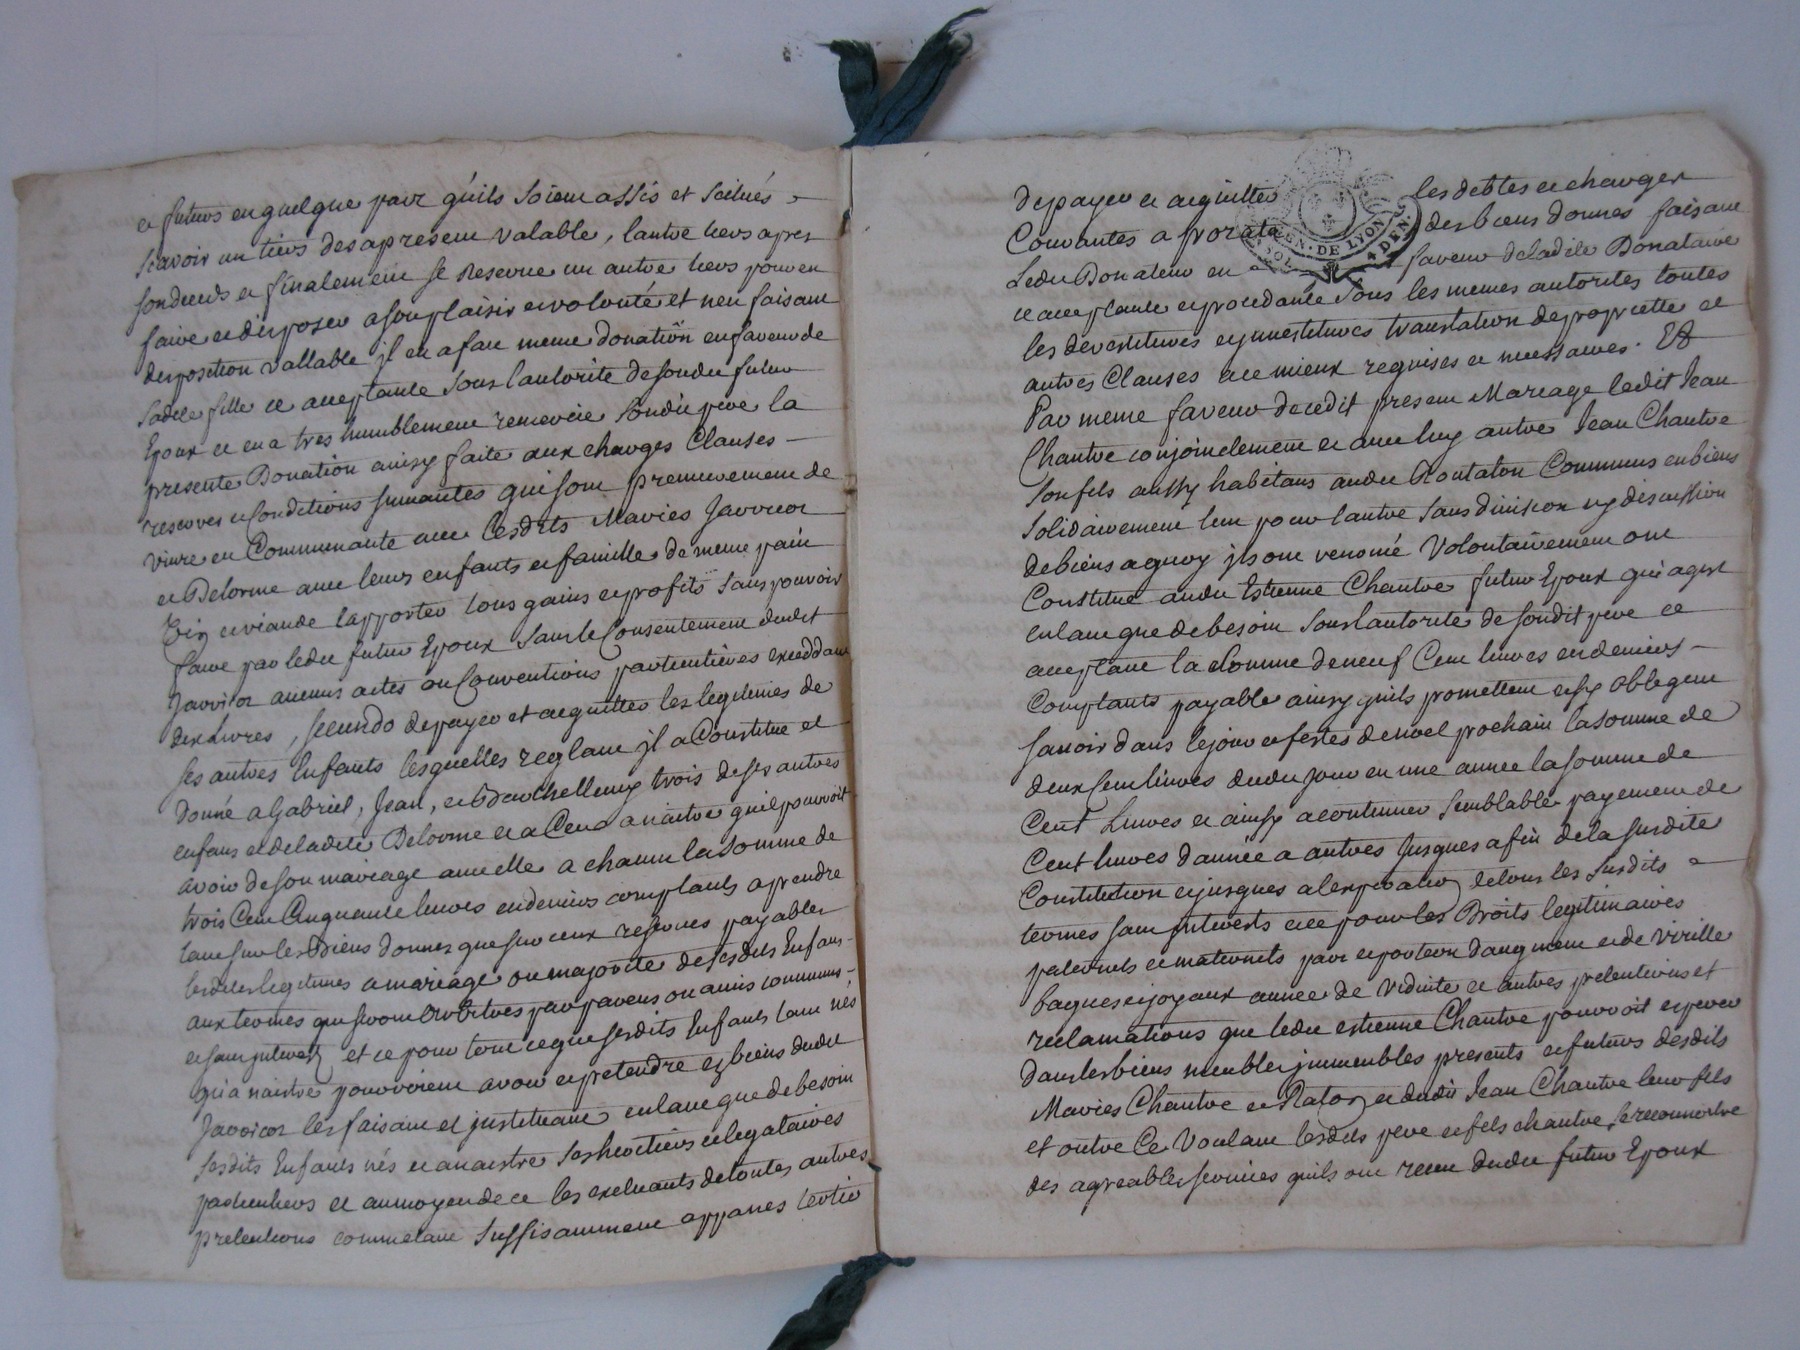 et futurs en quelque part quils soient assis et scitués
scavoir un tiers des apresent valable, lautre tiers apres
son deceds et finalement se Reserve un autre tiers pour en
faire et disposer a son plaisir et volonté et nen faisant
disposition vallable jl en a fait meme donation en faveur de
sadite fille et acceptante sous lautorité de sondit futur
Epoux et en a tres humblement remercié sondit pere la
presente Donation ainsy faite aux charges Clauses
reserves et Conditions suivantes qui sont premierement de
vivre en Communauté avec lesdits Mariés Javricor
et Delorme avec leurs enfants et famille de meme pain
vin et viande lapporter tous gains et profits sans pouvoir
faire par ledit futur Epoux sans le Consentement dudit
Javricor aucuns actes ou Conventions particulieres exceddant
dix Livres, secundo de payer et acquitter les legitimes de
ses autres Enfants lesquelles reglant jl a Constitué et
donné a Gabriel, Jean, et Barthellemy trois de ses autres
enfans et de ladite Delorme et a Ceux a naitre quil pourroit
avoir de son mariage avec elle a chacun la somme de
trois Cent Cinquante livres en deniers comptants a prendre
tant sur les Biens donnés que sur ceux reservés payables
lesdites legitimes a mariage ou majorité de sesdits Enfans
aux termes qui seront Arbitrés par parens ou amis communs
et sans jnterest et ce pour tout ce que sesdits Enfants tant nés
qu'a naitre pourroient avoir et pretendre es biens dudit
Javricor les faisant et jnstituant en tant que de besoin
sesdits Enfants nés et a naistre ses heritiers et legataires
particuliers et au moyen de ce les excluants de toutes autres
pretentions comme etant suffisamment appanés tertio
de payer et acquitter les debtes et charges
Courantes a prorata des biens donnés faisant
Ledit Donateur en faveur de ladite Donataire
et acceptante et procedante sous les memes autorités toutes
les devestitures et jnvestitures translation de proprietté et
autres Clauses au mieux requises et necessaires. Et
Par meme faveur de cedit present Mariage ledit Jean
Chantre conjointement et avec luy autre Jean Chantre
son fils aussy habitans audit Rontalon Communs en biens
solidairement lun pour lautre sans division ny discussion
de biens a quoy jls ont renoncé Volontairement ont
Constitué audit Estienne Chantre futur Epoux qui agist
en tant que de besoin sous lautorité de sondit pere et
acceptant la somme de neuf Cent livres en deniers
Comptants payable ainsy quils promettent et sy obligent
savoir dans le jour et festes de noel prochain la somme de
deux Cent livres dudit jour en une année la somme de
Cent Livres et ainsy a continuer semblable payement de
Cent livres d'année a autres jusques a fin de la susdite
Constitution et jusques a lexpiration de tous les susdits
termes sans jnterests et ce pour les Droits legitimaires
paternels et maternels part et portion d'augment et de virille
bagues et joyaux année de viduité et autres pretentions et
reclamations que ledit estienne Chantre pourroit esperer
dans les biens meubles jmmeubles presents et futurs desdits
Mariés Chantre et Raton et dudit Jean Chantre leur fils
et outre Ce Voulant lesdits pere et fils chantre se reconnoitre
des agreables services quils ont receu dudit futur Epoux
GEN. DE LYON
4 DEN.